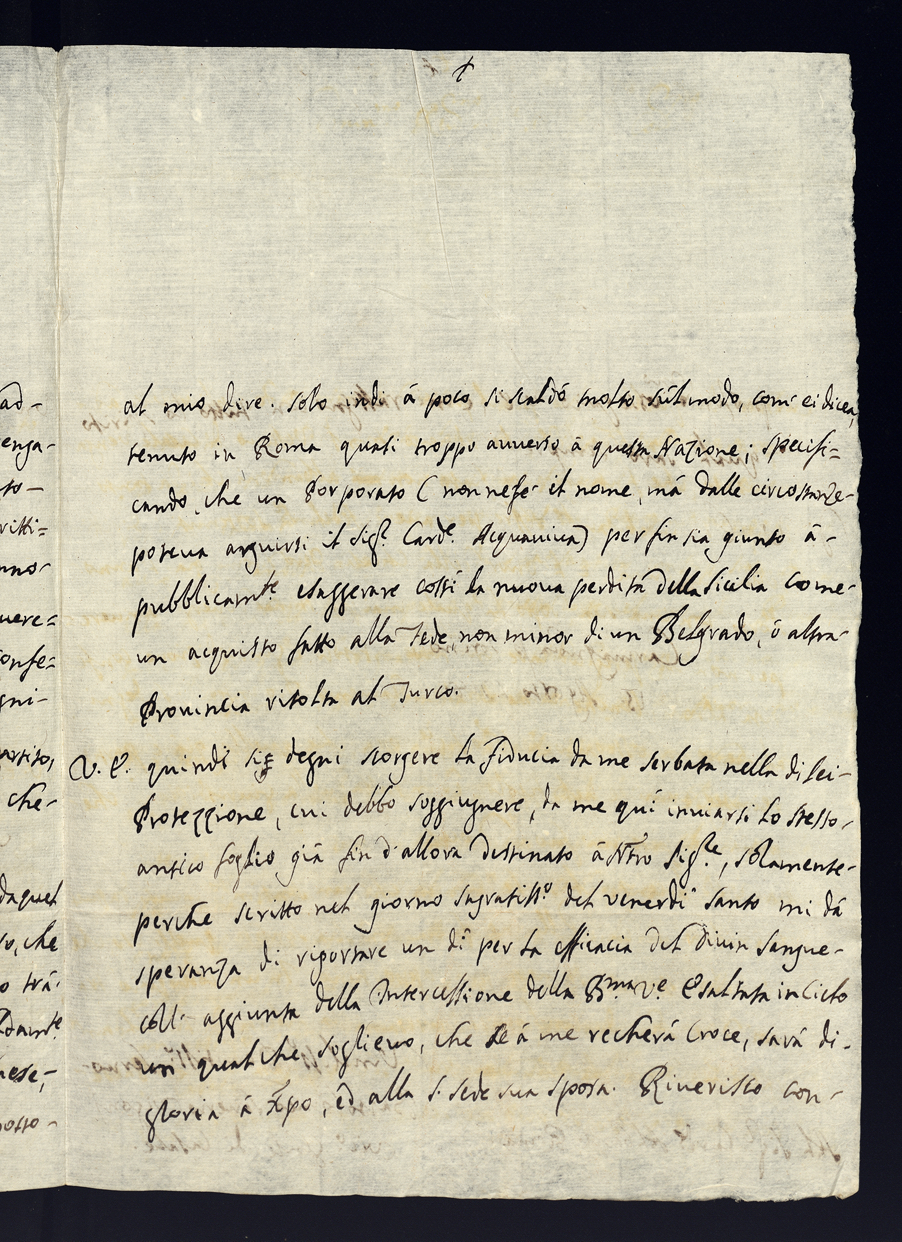 al mio dire. Solo indi à poco si scaldò molto sul modo, com' ei dicea,
tenuto in Roma quasi troppo avverso à questa Nazione; specifi=
cando, che un Porporato (non nesse il nome, mà dalle circostanze
poteva arguirsi il Sig.r Card.e Acquaviva) per fin sia giunto à
pubblicam.te esaggerare così la nuova perdita della Sicilia come
un acquisto fatto alla Sede non minor di un Belgrado, ò altra
Provincia ritolta al Turco.
V. E. quindi si degni scorgere la fiducia da me serbata nella di lei
Protezzione, cui debbo soggiugnere, da me quì inviarsi lo stesso
antico foglio già fin d'allora destinato à Ntro Sig.re, solamente
perche scritto nel giorno sagratiss.o del venerdì santo mi dà
speranza di riportare un dì per la efficacia del divin Sangue
coll' aggiunta della Intercessione della B.ma V.e Esaltata in Cielo
un qualche soglievo, che se à me recherà Croce, sarà di
gloria à Xpo, ed alla S. Sede sua sposa. Riverisco con
ad-
enga-
to-
ritti=
nno-
uere=
onfe=
gni-
artito,
che-
daquel
so, che
o trà
nese,
osto-